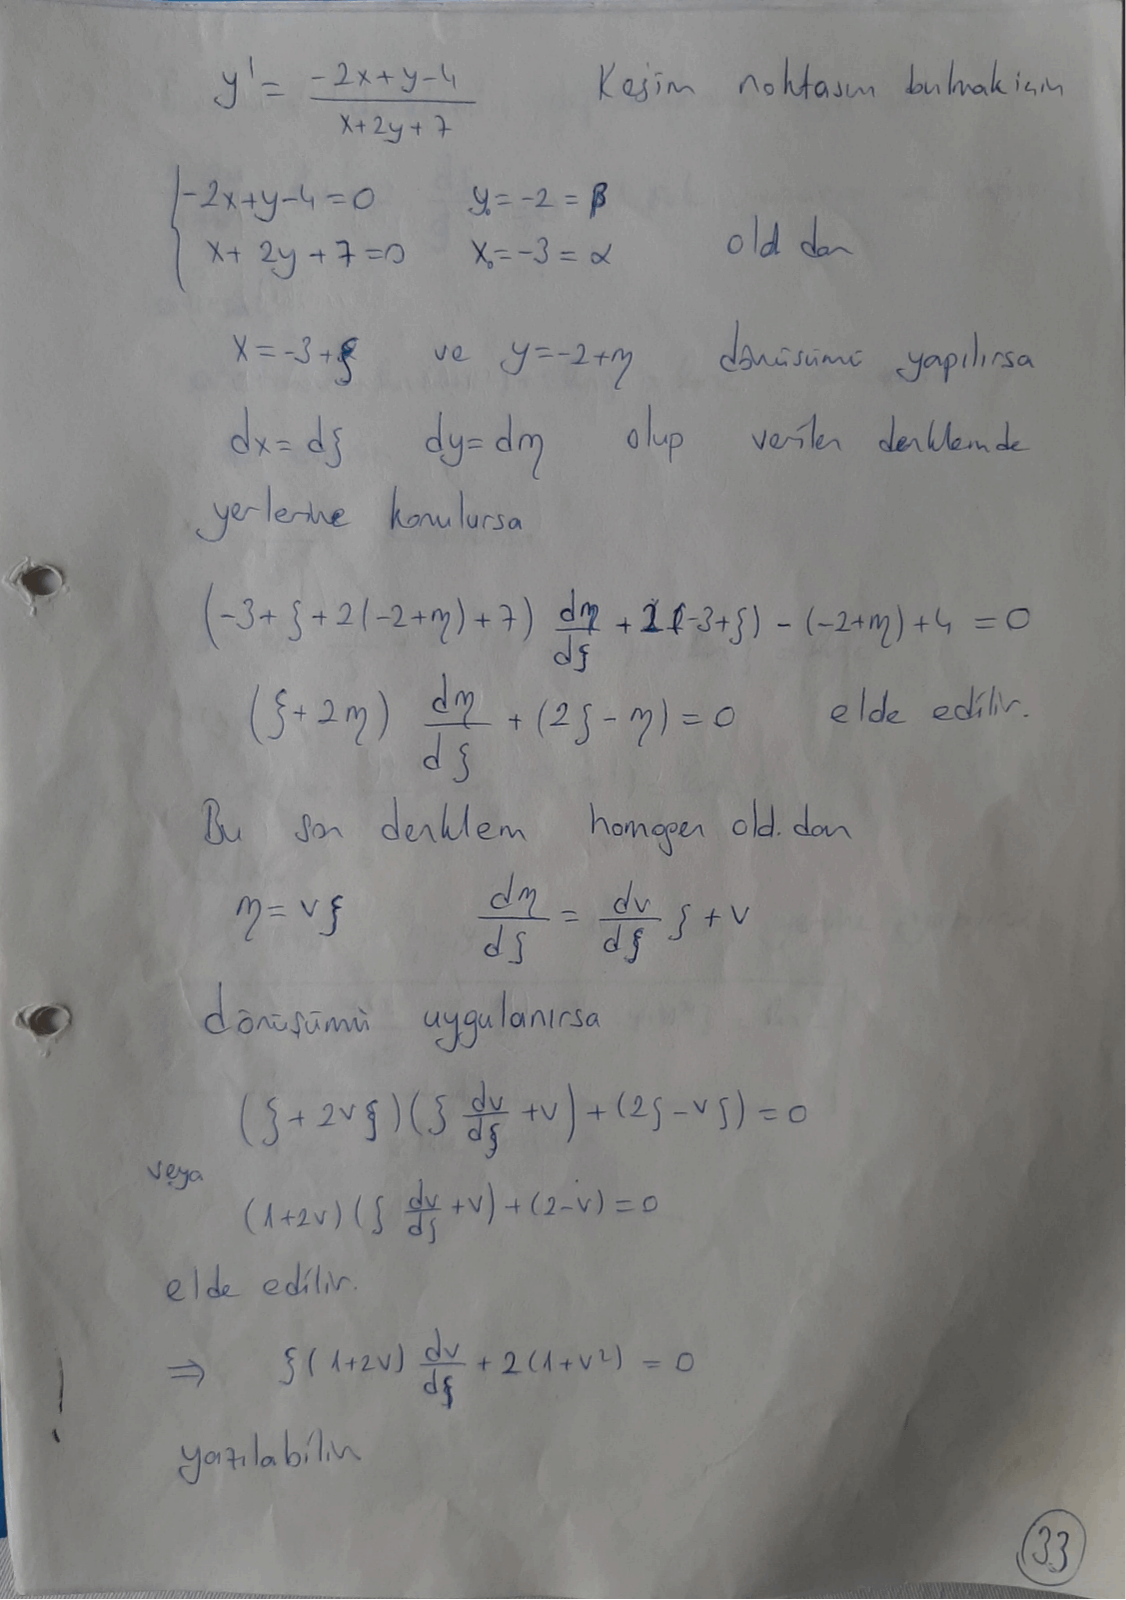 y' = (-2x+y-4)/(x+2y+7) Kesim noktasın bulmak için
{ -2x+y-4=0 y₀=-2=β
x+2y+7=0 x₀=-3=α old dan
x=-3+ξ ve y=-2+η dönüşümü yapılırsa
dx=dξ dy=dη olup verilen denklemde
yerlerine konulursa
(-3+ξ+2(-2+η)+7) dη/dξ + 2(-3+ξ) - (-2+η)+4 = 0
(ξ+2η) dη/dξ + (2ξ-η) = 0 elde edilir.
Bu son denklem homogen old. dan
η=vξ dη/dξ = dv/dξ ξ + v
dönüşümü uygulanırsa
(ξ+2vξ)(ξ dv/dξ +v)+(2ξ-vξ)=0
veya
(1+2v)(ξ dv/dξ +v)+(2-v)=0
elde edilir.
⇒ ξ(1+2v) dv/dξ + 2(1+v²) = 0
yazılabilir
33